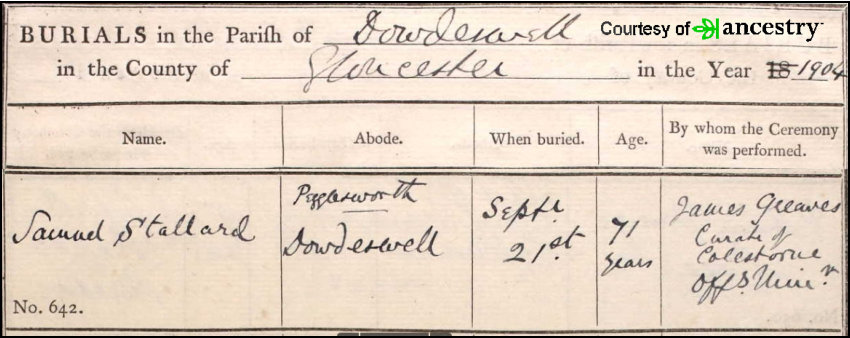 Courtesy of ancestry
BURIALS in the Parish of Dowdeswell
in the County of Gloucester in the Year 18 1904
Name. Abode. When buried. Age. By whom the Ceremony was performed.
Samuel Stallard
No. 642.
Pegglesworth
Dowdeswell
Septr.
21st.
71
years
James Greaves
Curate of
Colesborne
Off.g Minr.